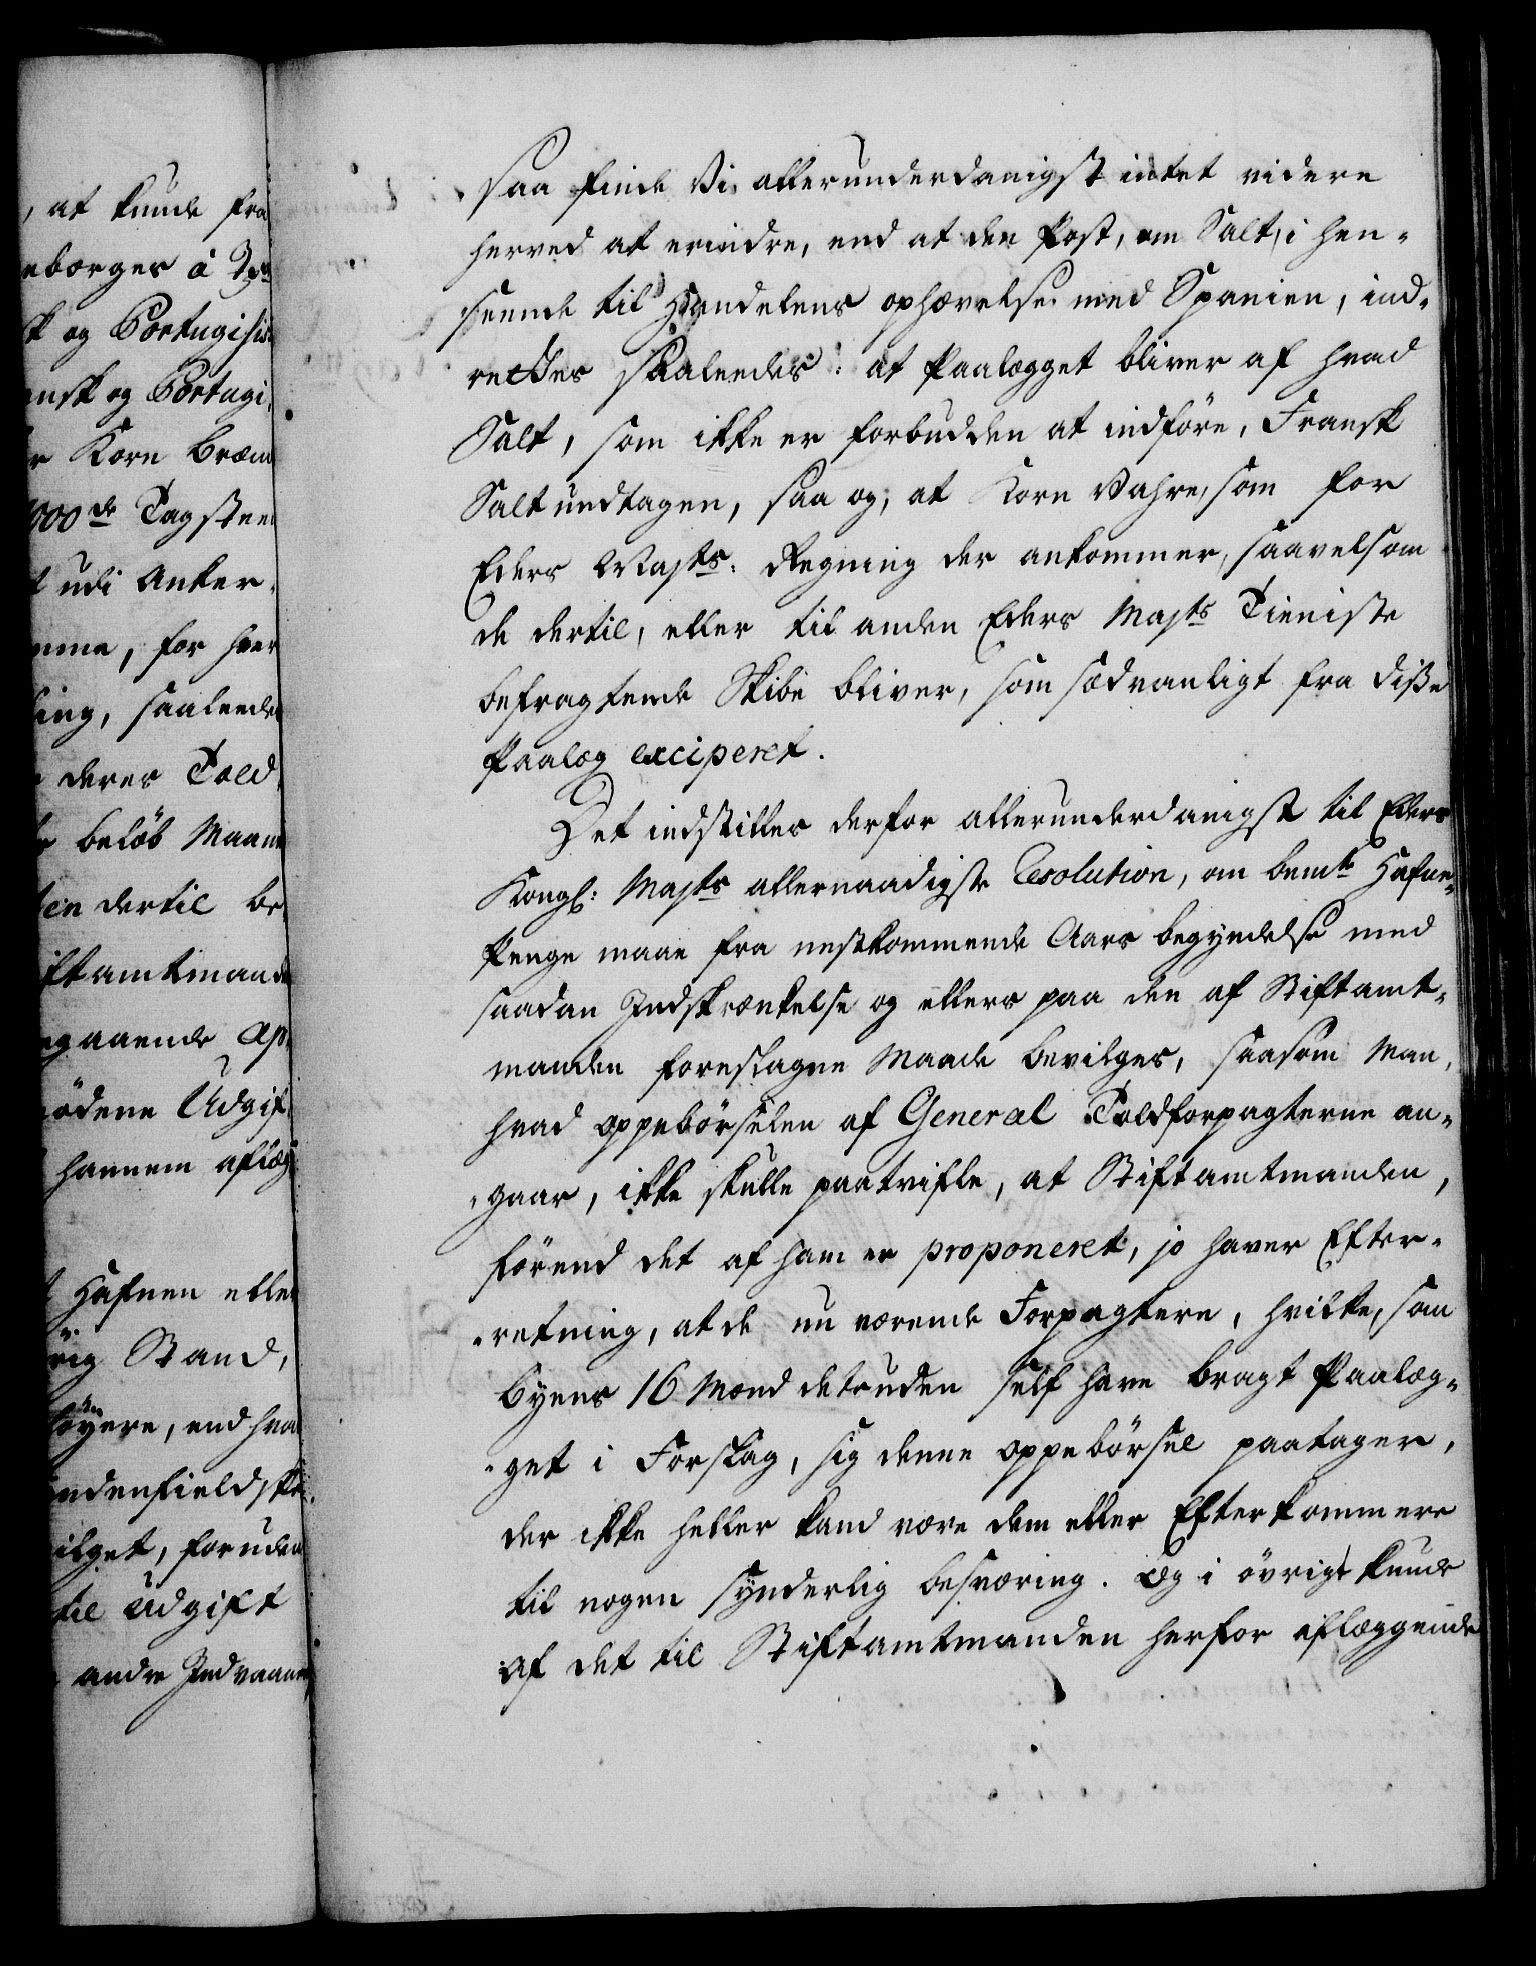 , at kunde fra
eborges à
k og Portugisis
ansk og Portugi
r Korn
1000de Tagsteen
udi Anker
mme, for hver
ing, saaleedes
deres Told
beløb Maan
en dertil be
iftamtmand
gaaende
ödene Udgif
hannem aflæg
Hafnen eller
rig Stand,
öyere, end hva
ndenfieldske
ilget, foruden
til Udgift
andre Indvaan
saa finde Vi allerunderdanigst intet videre
herved at erindre, end at den Post, om Salt, i hen-
seende til Handelens ophævelse med Spanien, ind-
rettes saaleedes: at Paalægget bliver af hvad
Salt, som ikke er forbudden at indföre, Fransk
Salt undtagen, saa og, at Korn Vahre, som for
Eders Mayts: Regning der ankommer, saavelsom
de dertil, eller til anden Eders Mayts Tieniste
befragtende Skibe bliver, som sædvanligt fra disse
Paalæg exciperet.
Det indstilles derfor allerunderdanigst til Eders
Kongl: Mayts allernaadigste Resolution, om bemte Hafne-
Penge maae fra nestkommende Aars begyndelse med
saadan Indskrænkelse og ellers paa den af Stiftamt-
manden foreslagne Maade bevilges, saasom Man,
hvad oppebörselen af General Toldforpagterne an-
gaar, ikke skulle paatvifle, at Stiftamtmanden,
förend det af ham er proponeret, jo haver Efter-
retning, at de nu værende Forpagtere, hvilke, som
Byens 16 Mænd desuden self have bragt Paalæg-
get i Forslag, sig denne oppebörsel paatager,
der ikke heller kand være dem eller Efterkommere
til nogen synderlig besværing. Og i övrigt kunde
af det til Stiftamtmanden herfor aflæggende